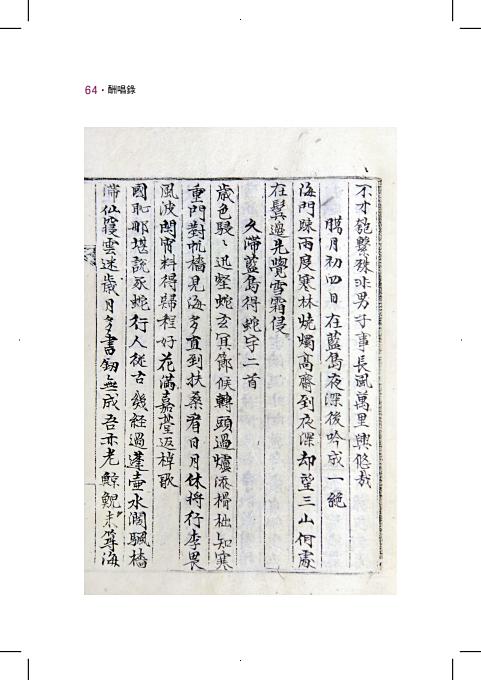 64·酬唱錄
不才匏繫殊非男子事長風萬里興悠哉
臘月初四日在藍島夜深後吟成一絶
海門踈雨度寒林燒燭高齋到夜深却望三山何處
在鬂邊先覺雪霜侵
久滯藍島得蛇字二首
歲色駸〻迅壑蛇玄冥節候轉頭過爐添榾柮知寒
重門對帆檣見海多直到扶桑看日月休將行李畏
風波閑宵料得歸程好花滿嘉莖返棹歌
國恥那堪說豕蛇行人從古幾經過蓬壺水濶颿檣
滯仙窺雲迷歲月多書釰無成吾亦老鯨鯢未算海